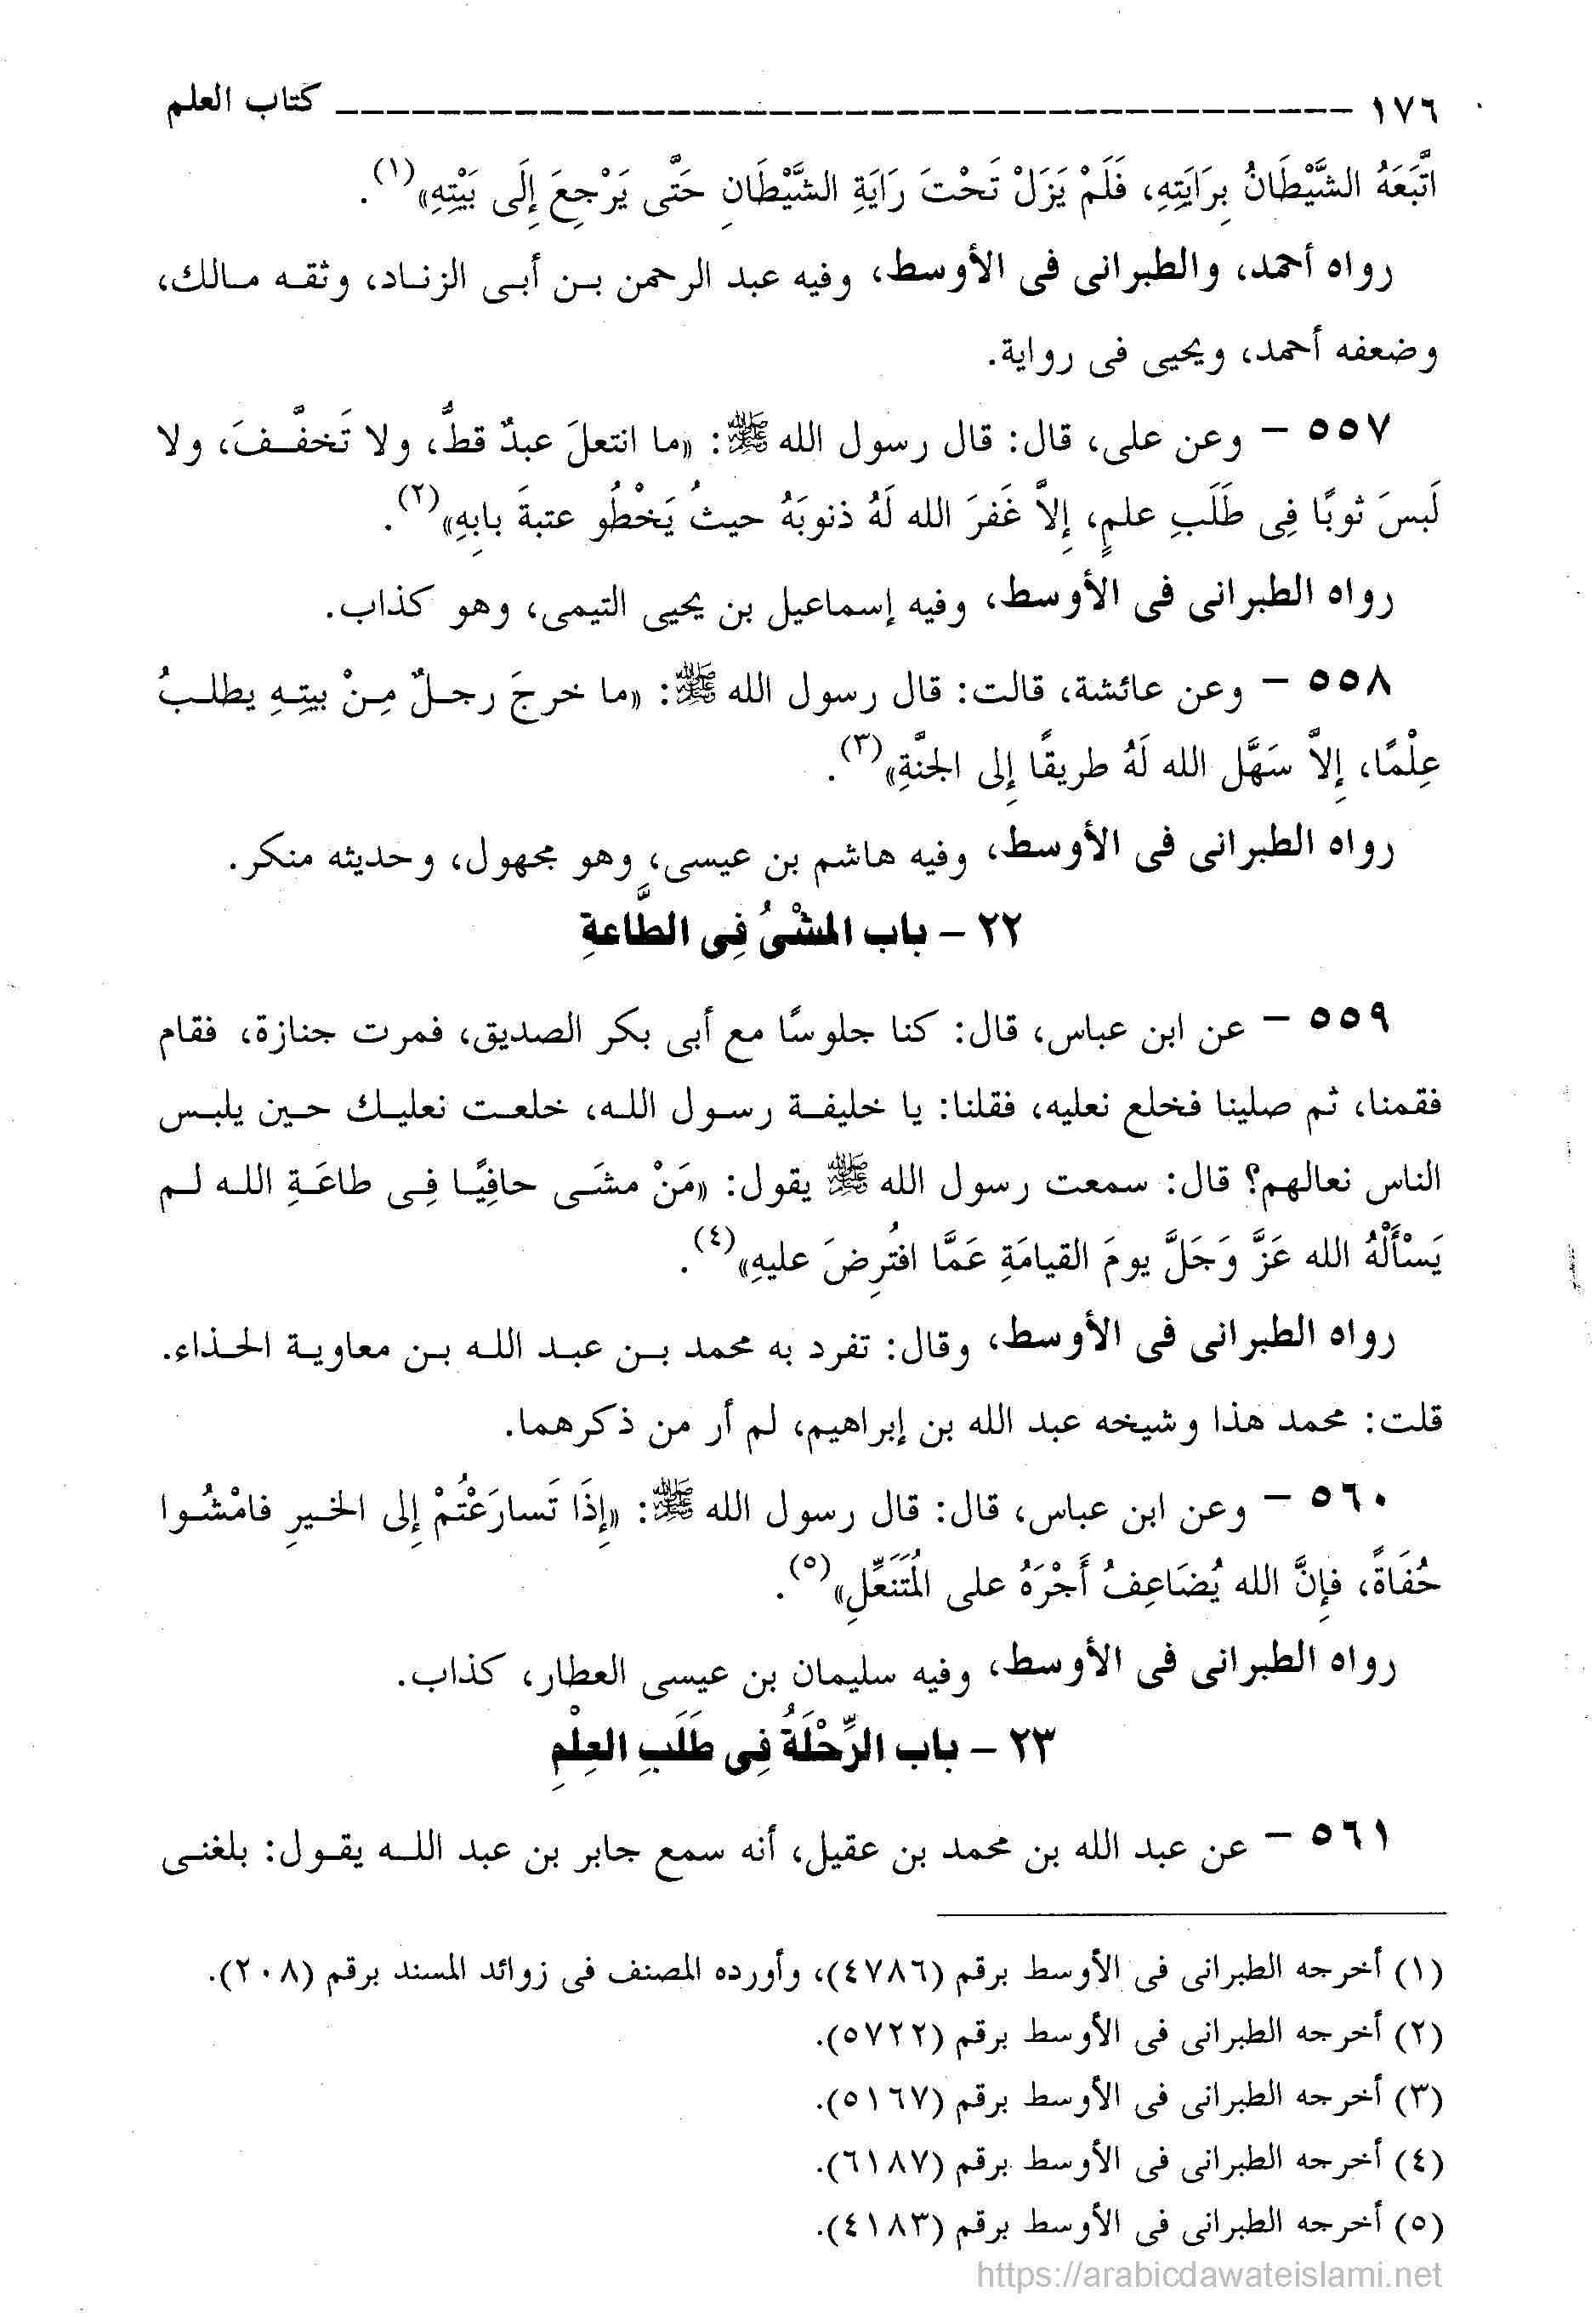 ١٧٦ ــــــــــــــــــــــــــــــــــــــــــــــــــــ كتاب العلم
اتَّبَعَهُ الشَّيْطَانُ بِرَايَتِهِ، فَلَمْ يَزَلْ تَحْتَ رَايَةِ الشَّيْطَانِ حَتَّى يَرْجِعَ إِلَى بَيْتِهِ»(١).
رواه أحمد، والطبرانى فى الأوسط، وفيه عبد الرحمن بن أبى الزناد، وثقه مالك،
وضعفه أحمد، ويحيى فى رواية.
٥٥٧ – وعن على، قال: قال رسول الله ﷺ: «ما انتعلَ عبدٌ قطُّ، ولا تَخفَّفَ، ولا
لَبسَ ثوبًا فِى طَلَبِ علمٍ، إِلاَّ غَفرَ الله لَهُ ذنوبَهُ حيثُ يَخْطُو عتبةَ بابِهِ»(٢).
رواه الطبرانى فى الأوسط، وفيه إسماعيل بن يحيى التيمى، وهو كذاب.
٥٥٨ – وعن عائشة، قالت: قال رسول الله ﷺ: «ما خرجَ رجلٌ مِنْ بيتِهِ يطلبُ
عِلْمًا، إِلاَّ سَهَّل الله لَهُ طريقًا إِلى الجنَّةِ»(٣).
رواه الطبرانى فى الأوسط، وفيه هاشم بن عيسى، وهو مجهول، وحديثه منكر.
٢٢ – باب المشْىُ فِى الطَّاعةِ
٥٥٩ – عن ابن عباس، قال: كنا جلوسًا مع أبى بكر الصديق، فمرت جنازة، فقام
فقمنا، ثم صلينا فخلع نعليه، فقلنا: يا خليفة رسول الله، خلعت نعليك حين يلبس
الناس نعالهم؟ قال: سمعت رسول الله ﷺ يقول: «مَنْ مشَى حافِيًا فِى طاعَةِ الله لم
يَسْأَلْهُ الله عَزَّ وَجَلَّ يومَ القيامَةِ عَمَّا افتُرِضَ عليهِ»(٤).
رواه الطبرانى فى الأوسط، وقال: تفرد به محمد بن عبد الله بن معاوية الحذاء.
قلت: محمد هذا وشيخه عبد الله بن إبراهيم، لم أر من ذكرهما.
٥٦٠ – وعن ابن عباس، قال: قال رسول الله ﷺ: «إِذَا تَسارَعْتُمْ إِلى الخيرِ فامْشُوا
حُفَاةً، فإِنَّ الله يُضَاعِفُ أَجْرَهُ على المُتَنَعِّلِ»(٥).
رواه الطبرانى فى الأوسط، وفيه سليمان بن عيسى العطار، كذاب.
٢٣ – باب الرِّحْلَةُ فِى طَلَبِ العِلْمِ
٥٦١ – عن عبد الله بن محمد بن عقيل، أنه سمع جابر بن عبد الله يقول: بلغنى
(١) أخرجه الطبرانى فى الأوسط برقم (٤٧٨٦)، وأورده المصنف فى زوائد المسند برقم (٢٠٨).
(٢) أخرجه الطبرانى فى الأوسط برقم (٥٧٢٢).
(٣) أخرجه الطبرانى فى الأوسط برقم (٥١٦٧).
(٤) أخرجه الطبرانى فى الأوسط برقم (٦١٨٧).
(٥) أخرجه الطبرانى فى الأوسط برقم (٤١٨٣).
https://arabicdawateislami.net